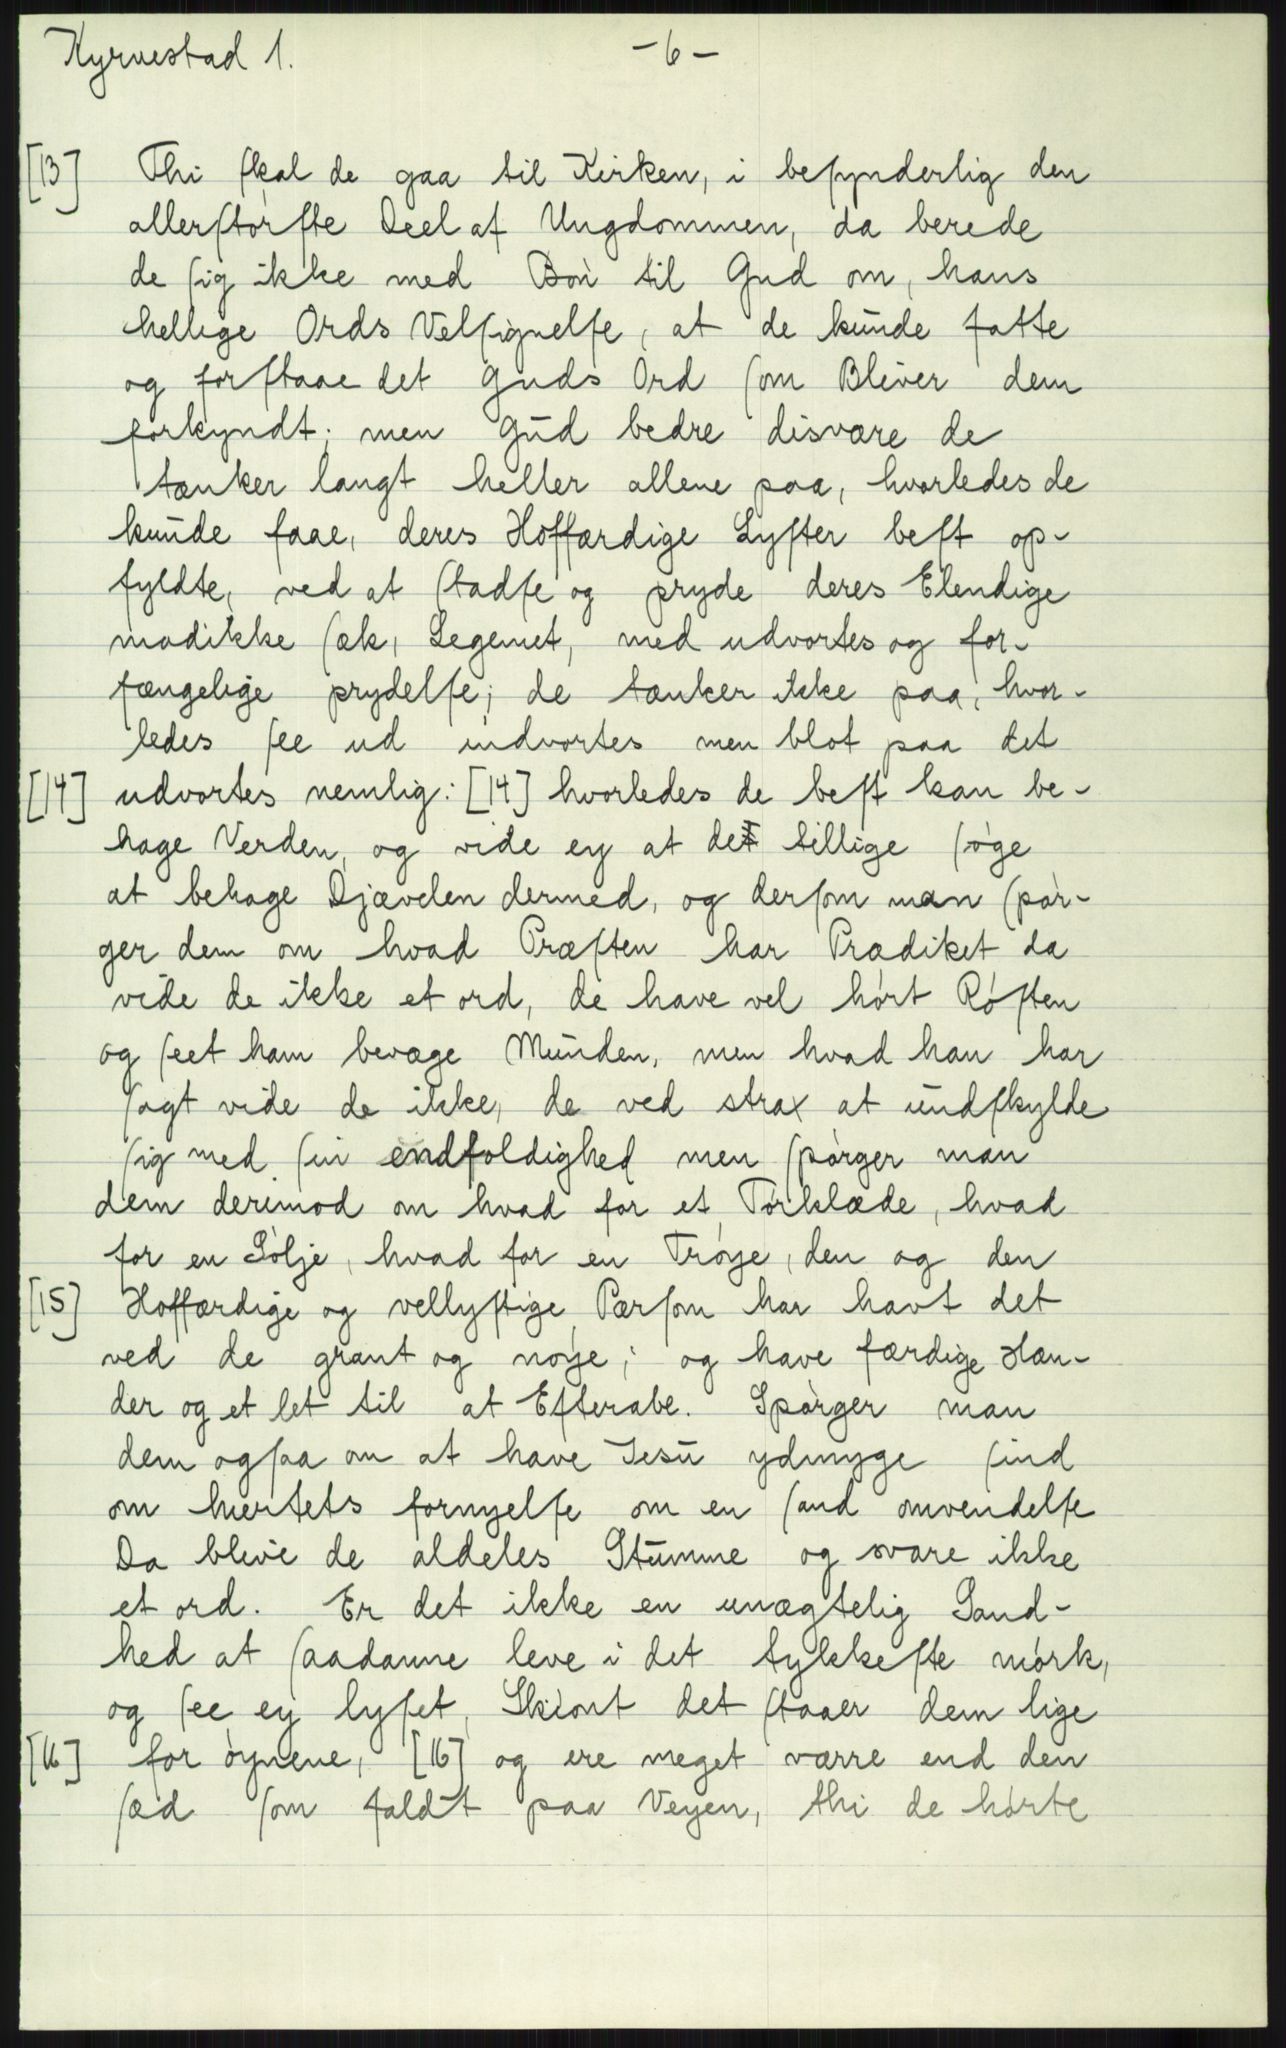 Kyrvestad 1. -6-
[13] Thi ſkal de gaa til Kirken, i beſynderlig den
allerſtórſte Deel af Ungdommen, da berede
de ſig ikke med Bón til Gud om, hans
hellige Ords Velſignelſe, at de kunde fatte
og forſtaae det Guds Ord ſom Bliver dem
forkyndt; men Gud bedre disvære de
tænker langt heller allene paa, hvorledes de
kunde faae, deres Hoffærdige Lyſter beſt op-
fyldte, ved at ſtadſe og pryde deres Elendige
madikke ſæk, Legemet, med udvortes og for-
fængelige prydelſe; de tænker ikke paa, hvor-
ledes ſee ud indvortes men blot paa det
[14] udvortes nemlig: [14] hvorledes de beſt kan be-
hage Verden, og vide ey at det tillige ſóge
at behage Djævelen dermed, og derſom man ſpór-
ger dem om hvad Præſten har Prædiket da
vide de ikke et ord, de have vel hórt Róſten
og ſeet ham bevæge Munden, men hvad han har
ſagt vide de ikke, de ved strax at undſkylde
ſig med ſin endfoldighed men ſpórger man
dem derimod om hvad for et Tórklæde, hvad
for en Sólje, hvad for en Tróye, den og den
[15] Hoffærdige og vellyſtige Pærſon har havt det
ved de grant og nóye; og have færdige Hæn-
der og et let til at Efterabe. Spórger man
dem ogſaa om at have Jesu ydmyge ſind
om hiertets fornyelſe om en ſand omvendelſe
Da blive de aldeles Stumme og svare ikke
et ord. Er det ikke en unægtelig Sand-
hed at ſaadanne leve i det tykkeſte mórk,
og ſee ey lyſet, Skiónt det ſtaaer dem lige
[16] for óynene, [16] og ere meget værre end den
ſæd ſom faldt paa Veyen, thi de hórte